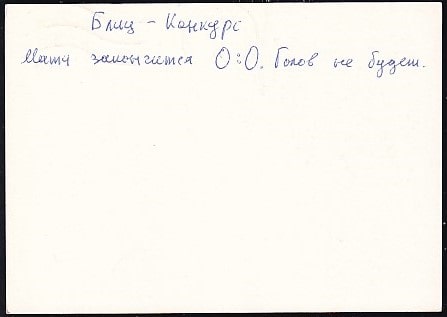 Блиц - Конкурс
Матч закончится 0:0. Голов не будет.